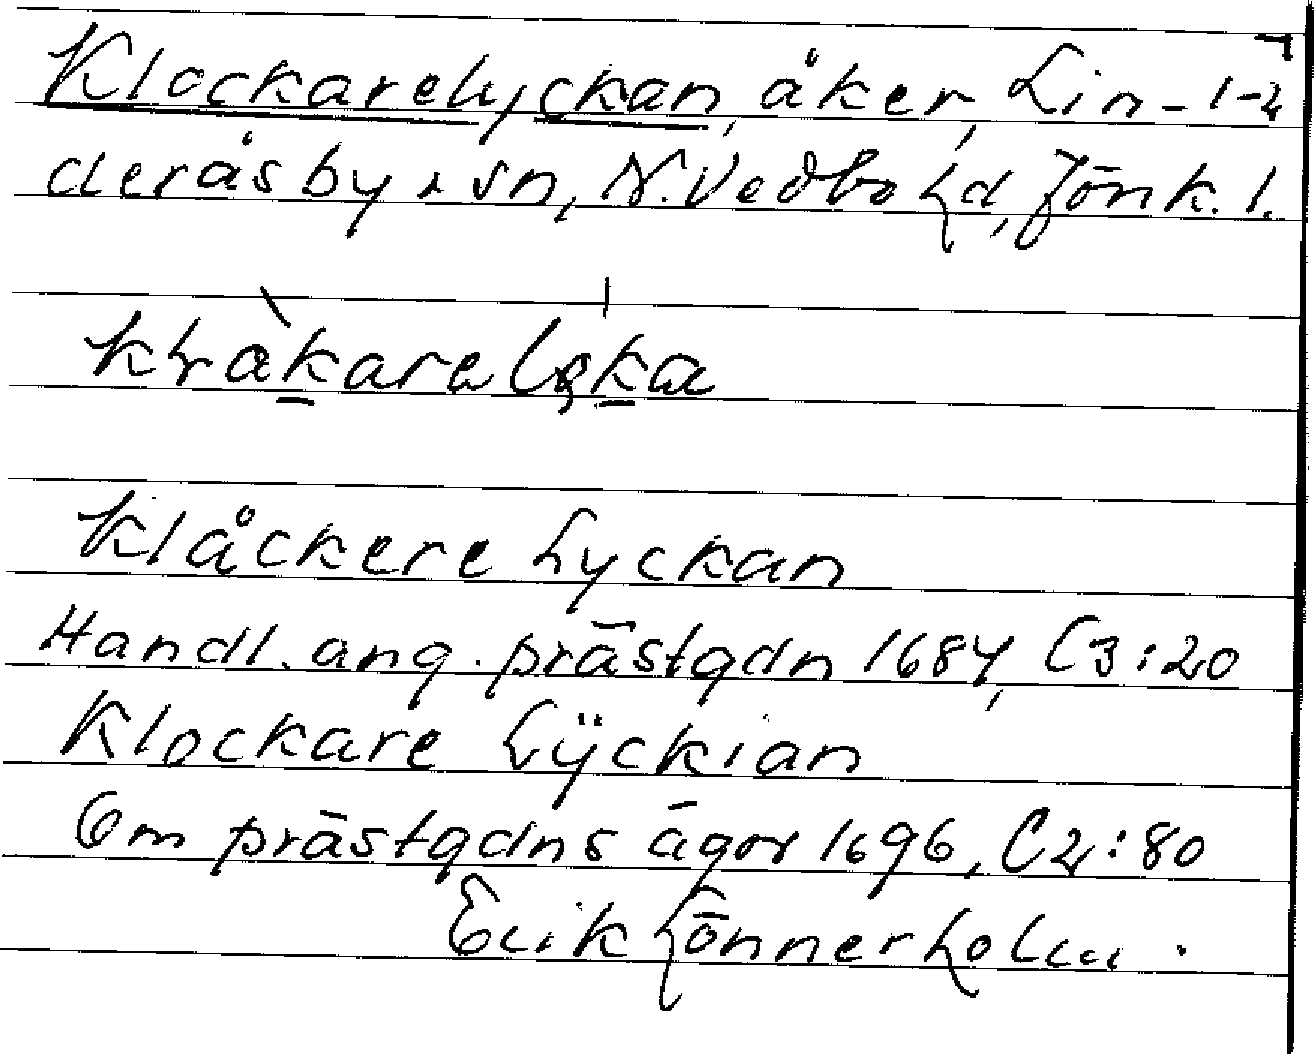 Klockarelyckan, åker, Lin-1-2
deråsby o sn, N. Vedbo hd, Jönk. l.
Klåckere Lyckan
Handl. ang. prästgdn 1684, C3:20
Klockare Lÿckian
Om prästgdns ägor 1696, C2:80
Erik Lönnerholm.